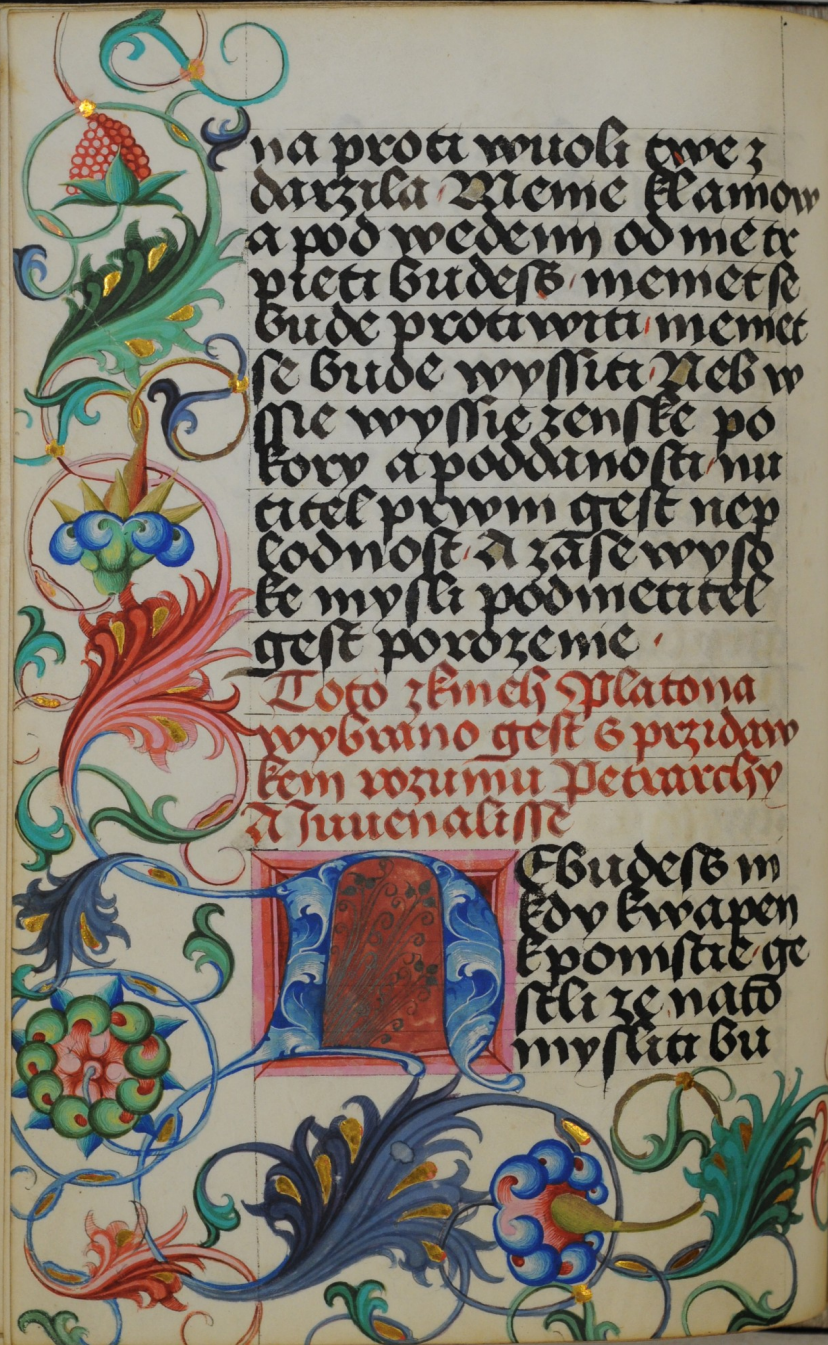 na proti wuoli twe z
darzila Meme klamow
a pod wedenn od me tr
pieti budess memet se
bude protiwiti memet
se bude wyssiti Neb w
ssie wyssie zenske po
kory a poddanosti nu
titel prwni gest nep
lodnost A zase wyso
ke mysli podmetitel
gest porozenie
Toto zknieh Platona
wybrano gest s przidaw
kem rozumu Petrarchy
A Juuenalisse
NEbudess ni
kdy kwapen
kpomstie ge
stli ze nato
mysliti bu